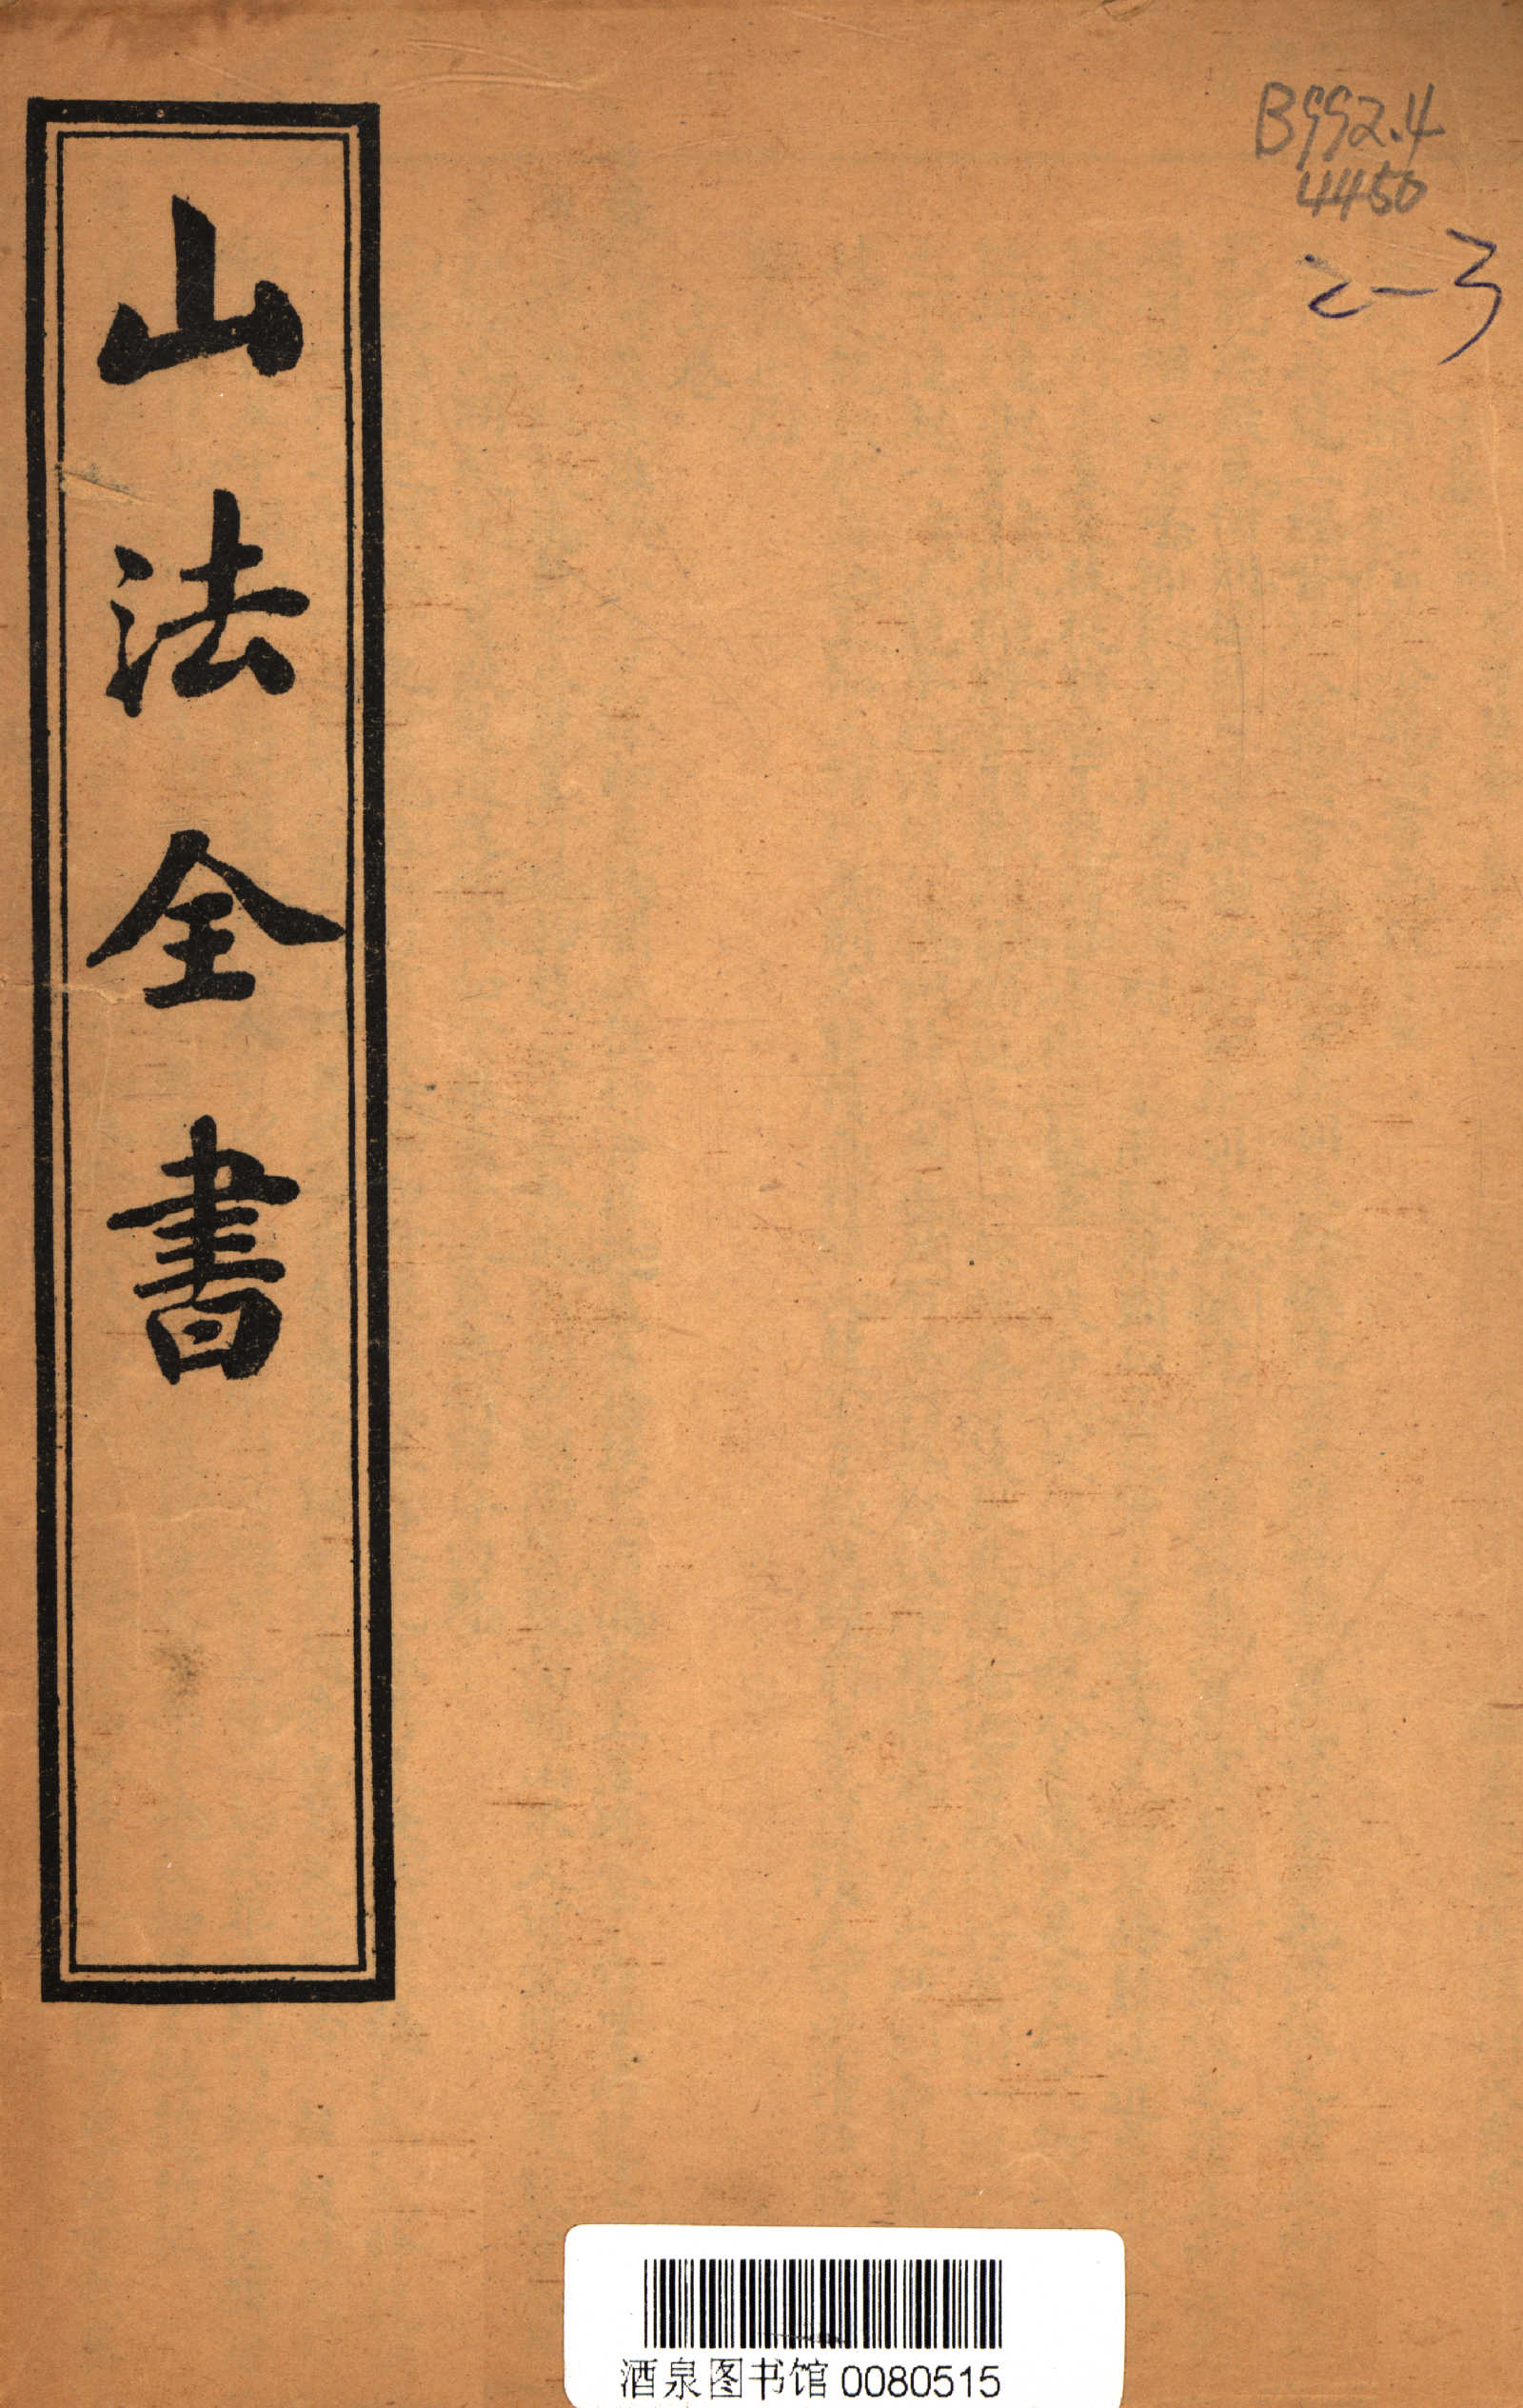 山法全書
B992.4
4450
2-3
酒泉图书馆 0080515